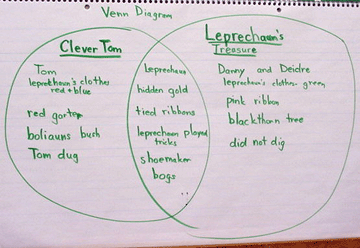 Venn Diagram
Clever Tom
Tom
leprechaun's clothes
red + blue
red garter
boliauns bush
Tom dug
Leprechaun
hidden gold
tied ribbons
leprechaun played
tricks
shoemaker
bogs
Leprechaun's
Treasure
Danny and Deidre
leprechaun's clothes green
pink ribbon
blackthorn tree
did not dig